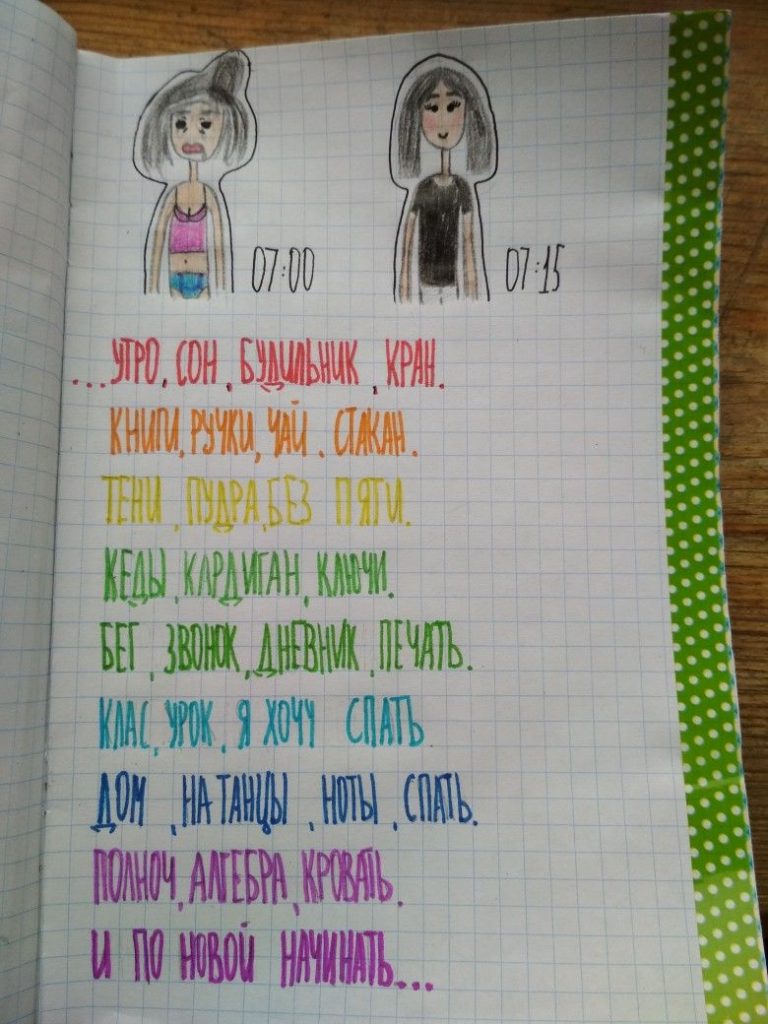 07:00
07:15
...УТРО, СОН, БУДИЛЬНИК, КРАН.
КНИГИ, РУЧКИ, ЧАЙ, СТАКАН.
ТЕНИ, ПУДРА, БЕЗ ПЯТИ.
КЕДЫ, КАРДИГАН, КЛЮЧИ.
БЕГ, ЗВОНОК, ДНЕВНИК, ПЕЧАТЬ.
КЛАС, УРОК, Я ХОЧУ СПАТЬ
ДОМ, НА ТАНЦЫ, НОТЫ, СПАТЬ.
ПОЛНОЧ, АЛГЕБРА, КРОВАТЬ.
И ПО НОВОЙ НАЧИНАТЬ...